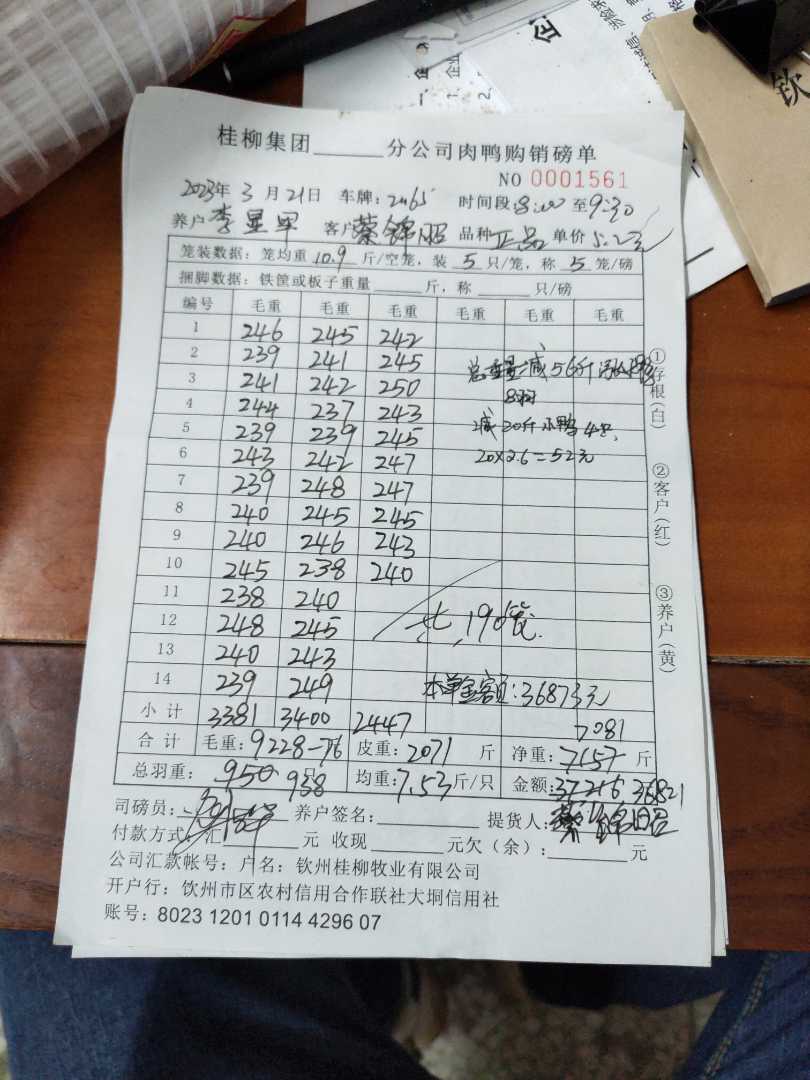 桂柳集团______分公司肉鸭购销磅单
NO 0001561
2023年 3 月 21日 车牌：2465 时间段：8:00 至 9:30
养户 李显军 客户 蔡锦昭 品种 正品 单价 5.2元
笼装数据：笼均重 10.9 斤/空笼，装 5 只/笼，称 5 笼/磅
捆脚数据：铁筐或板子重量______斤，称______只/磅
编号 毛重 毛重 毛重 毛重 毛重 毛重
1 246 245 242
2 239 241 245
3 241 242 250
4 244 237 243
5 239 239 245
6 243 242 247
7 239 248 247
8 240 245 245
9 240 246 243
10 245 238 240
11 238 240
12 248 245
13 240 243
14 239 249
总重量减56斤
减20斤小鸭4只
20×2.6=52元
共190笼
本单金额：36873元
小计 3381 3400 2447
7081
合计 毛重：9228-76 皮重：2071 斤 净重：7157 斤
总羽重：950只 938 均重：7.53斤/只 金额：37216 36821
司磅员： 养户签名：______ 提货人：蔡锦昭
付款方式：汇______元 收现______元欠（余）：______元
公司汇款帐号：户名：钦州桂柳牧业有限公司
开户行：钦州市区农村信用合作联社大垌信用社
账号：8023 1201 0114 4296 07
①存根（白）
②客户（红）
③养户（黄）
钦